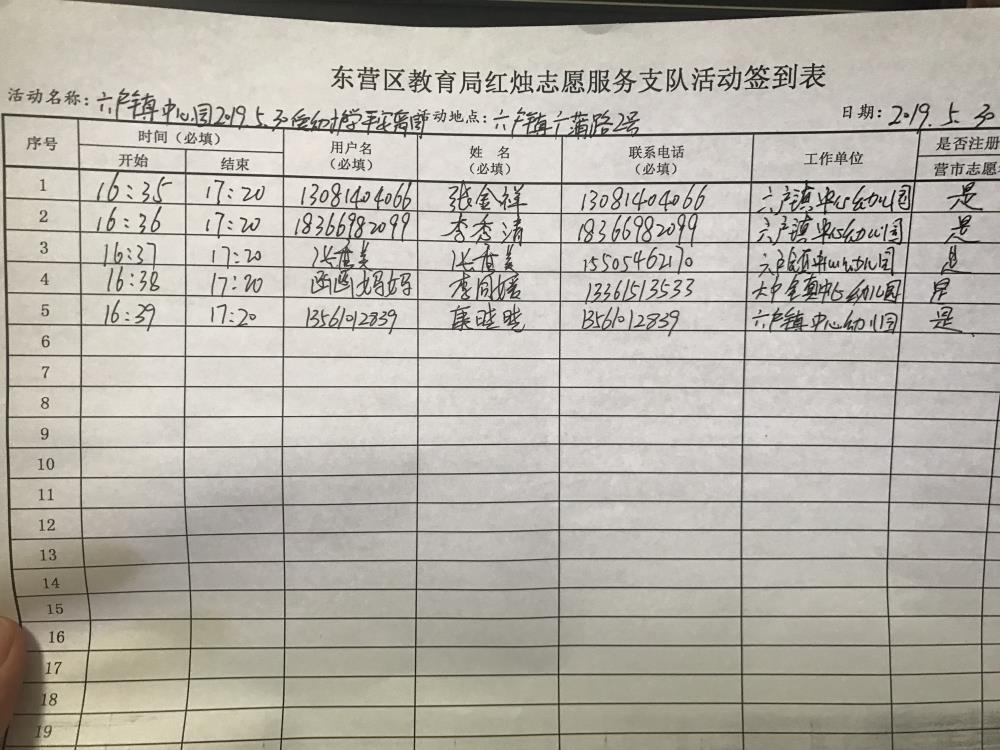 东营区教育局红烛志愿服务支队活动签到表
活动名称：六户镇中心园2019.5.30 活动地点：六户镇广蒲路2号 日期：2019.5.30
序号 时间（必填） 用户名（必填） 姓名（必填） 联系电话（必填） 工作单位 是否注册
开始 结束 营市志愿
1 16:35 17:20 13081404066 张金祥 13081404066 六户镇中心幼儿园 是
2 16:36 17:20 18366982099 李秀清 18366982099 六户镇中心幼儿园 是
3 16:37 17:20 张 美 张 美 15505462170 六户镇中心幼儿园 是
4 16:38 17:20 妈妈 李 13361513533 幼儿园 是
5 16:39 17:20 13561012839 康晓晓 13561012839 六户镇中心幼儿园 是
6
7
8
9
10
11
12
13
14
15
16
17
18
19